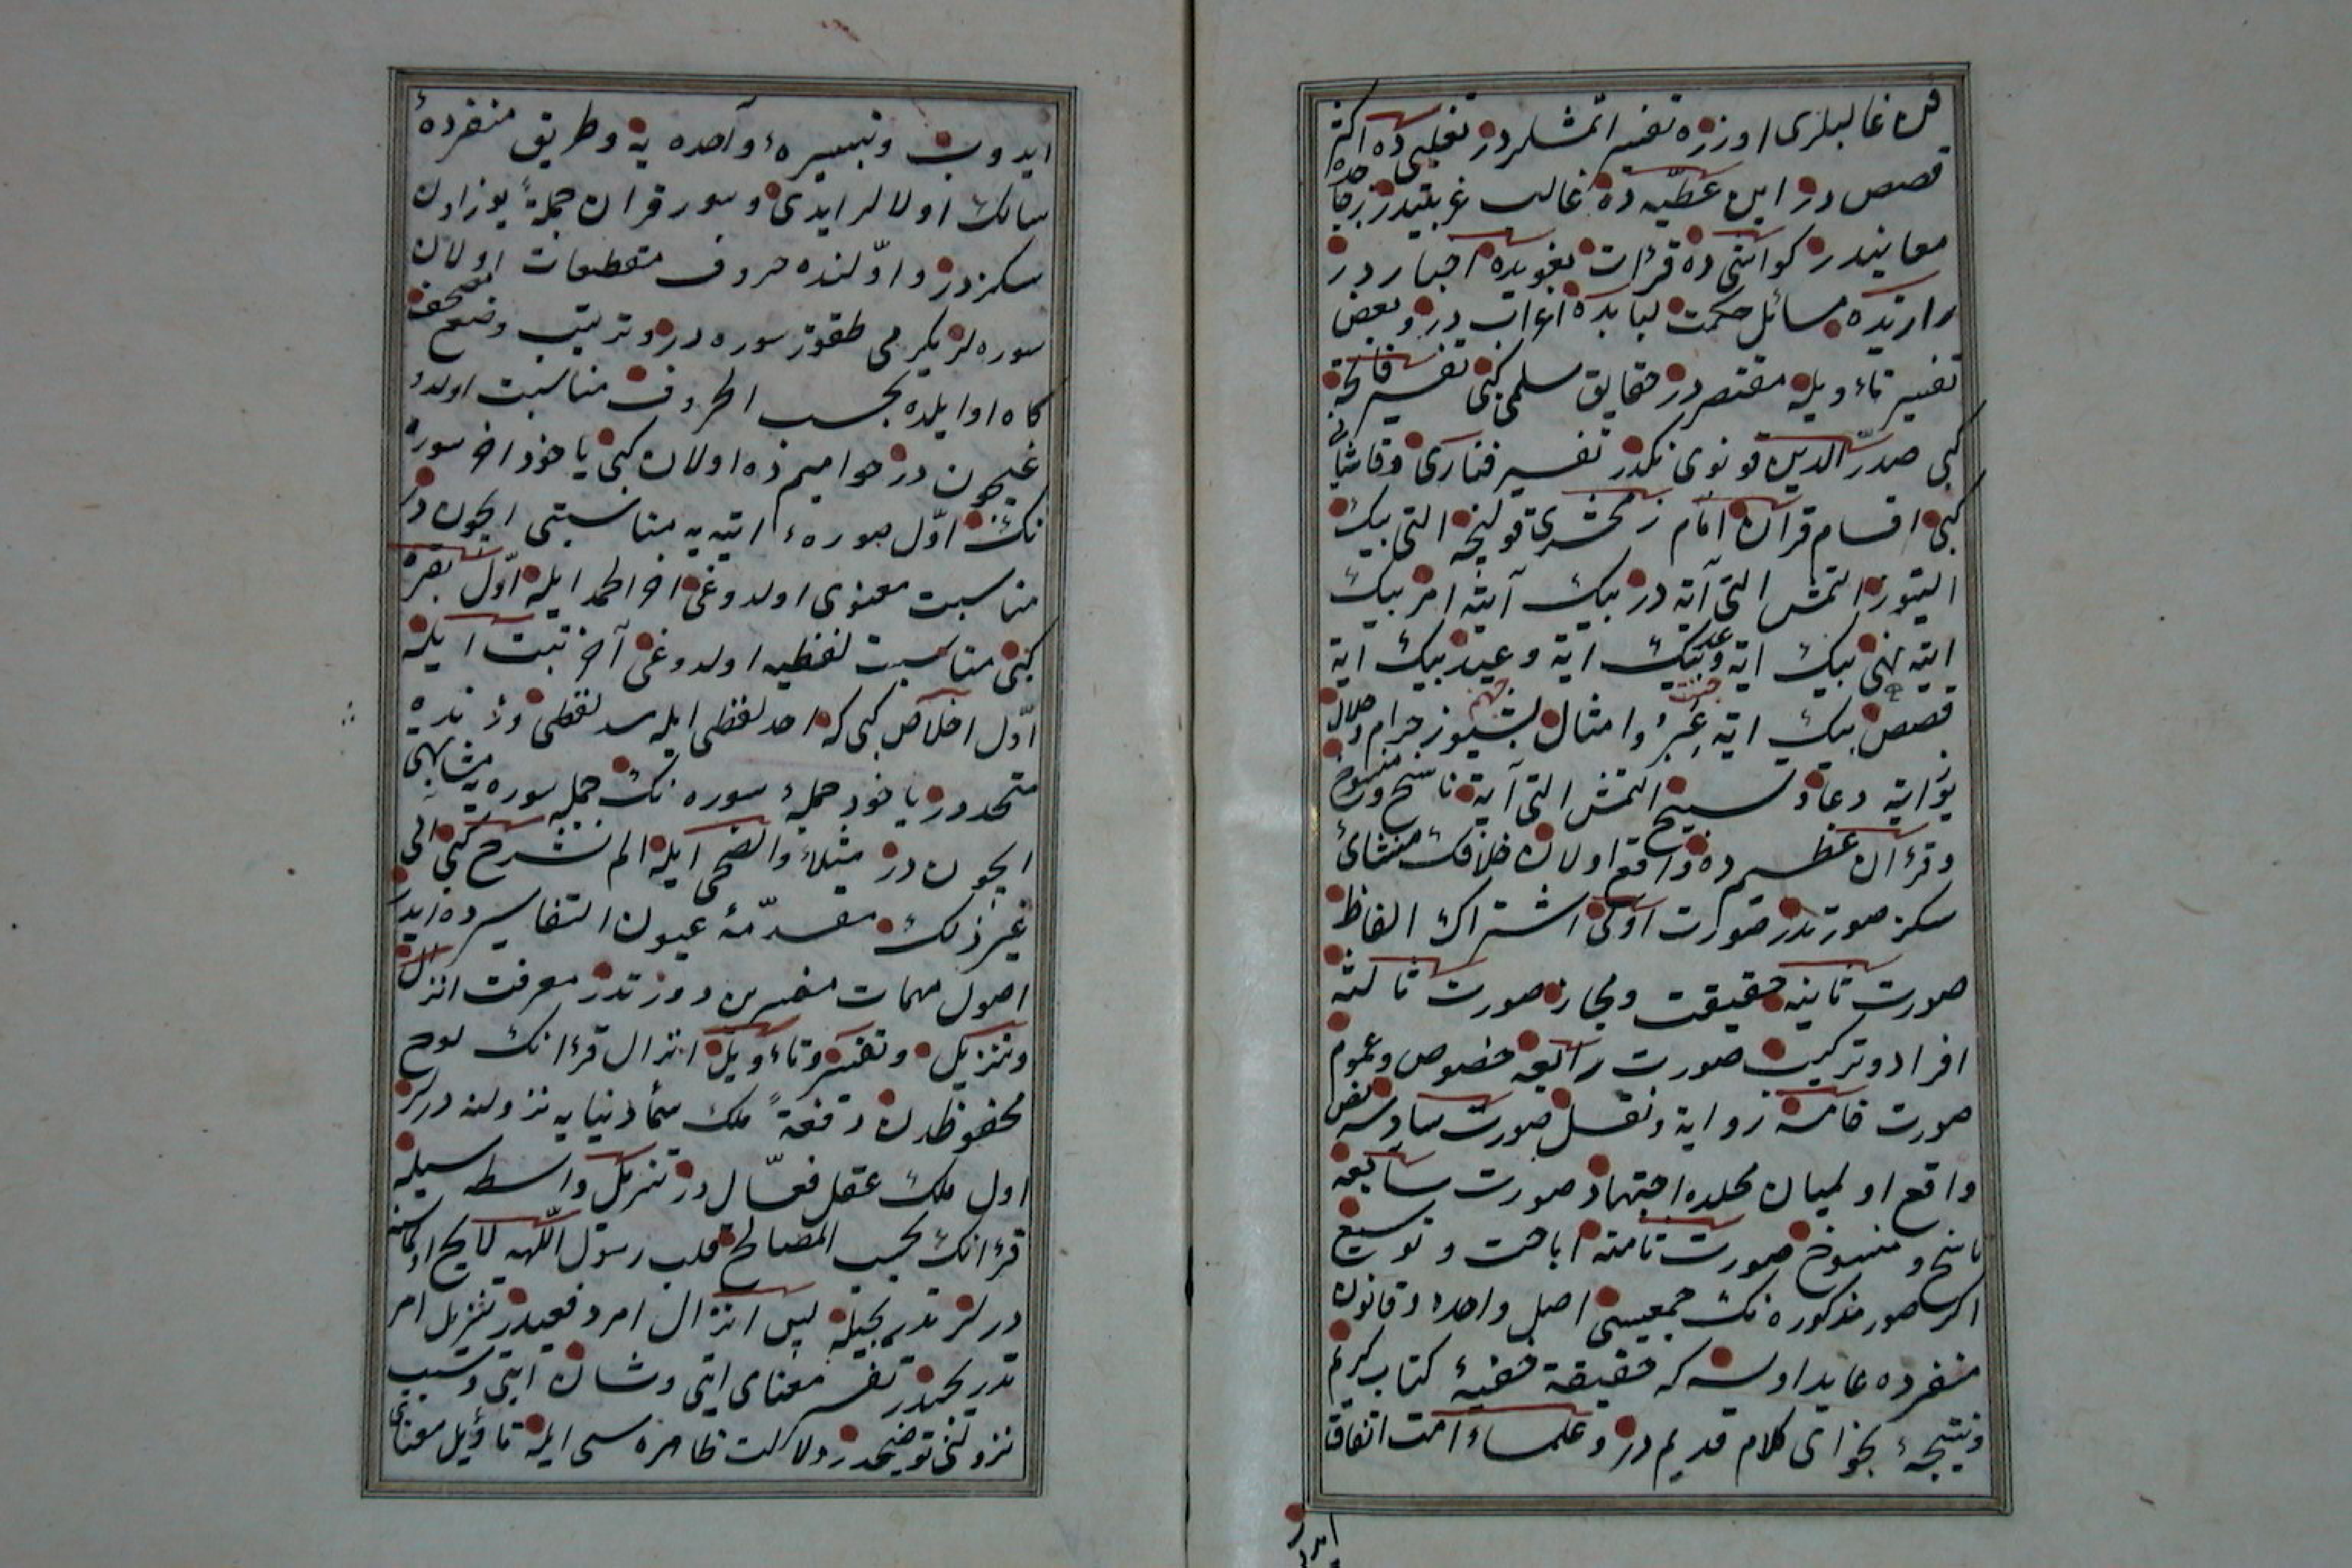 فن غالبلری اوزره تفسیر اتمشلردر ثعلبی ده اکثر
قصص در ابن عطیه ده غالب غریبتیدر زجاجده
معانیدر کواشی ده قرائت بغویده اخبار در
رازیده مسائل حکمت لبابده اعراب در و بعض
تفسیر تاءویله مقتصر در حقایق سلمی کبی تفسیر فاتحه
کبی صدر الدین قونوی نکدر تفسیر فناری وقاشانی
کبی اقسام قرآن امام زمخشری قولنجه التی بیک
التیوز التمش التی آیة در بیک آیة امر بیک
ایة نهی بیک ایة وعد بیک ایة وعید بیک ایة
قصص بیک ایة عبر وامثال بشیوز حرام وحلال
یوز ایة دعا وتسبیح التمش التی آیة ناسخ ومنسوخ
وقرءآن عظیم ده واقع اولان خلافک منشائ
سکز صورتدر صورت اولی اشتراک الفاظ
صورت ثانیه حقیقت ومجاز صورت ثالثه
افراد وترکیب صورت رابعه خصوص وعموم
صورت خامسه روایة ونقل صورت سادسه نص
واقع اولمیان محلده اجتهاد صورت سابعه
ناسخ ومنسوخ صورت ثامنه اباحت وتوسیع
اکر صور مذکوره نک جمعیسی اصل واحده وقانون
منفرده عاید اولسه که حقیقة خفیۀ کتاب کریم
ونتیجۀ فحوای کلام قدیم در وعلماء امت اتفاق
ایدوب وتیسیرهء واحده یه وطریق منفردهء
سالک اولالر ایدی وسور قران جملةً یوزاون
سکزدر واولنده حروف مقطعات اولان
سوره لر یکرمی طقوز سوره در وترتیب وضع مصحف
کاه اوایلده بحسب الحروف مناسبت اولدو
غیچون در حوامیم ده اولان کبی یاخود اخر سوره
نک اول سورهء اتیه یه مناسبتی ایچون در
مناسبت معنوی اولدوغی اخر الحمد ایله اول بقره
کبی مناسبت لفظیه اولدوغی آخر تبت ایله
اول اخلاص کبی که احد لفظی ایله مسد لفظی وزنده
متحددر یاخود جملهء سوره نک جمله سوره یه مشابهتی
ایچون در مثلا والضحی ایله الم نشرح کبی الی
غیر ذلک مقدمۀ عیون التفاسیرده ایدر
اصول مهمات مفسرین دورتدر معرفت انزال
وتنزیل وتفسیر وتاءویل انزال قرءانک لوح
محفوظدن دفعةً ملک سماء دنیایه نزولنه درلر
اول ملک عقل فعال در تنزیل واسطه سیله
قرءانک بحسب المصالح قلب رسول اللهه لایح اولماسنه
درلر تدریجیله پس انزال امر دفعیدر تنزیل امر
تدریجیدر تفسیر معنای ایتی وشان ایتی وسبب
نزولنی توضیحدر دلالت ظاهره سی ایله تاؤیل معنای
ایدر